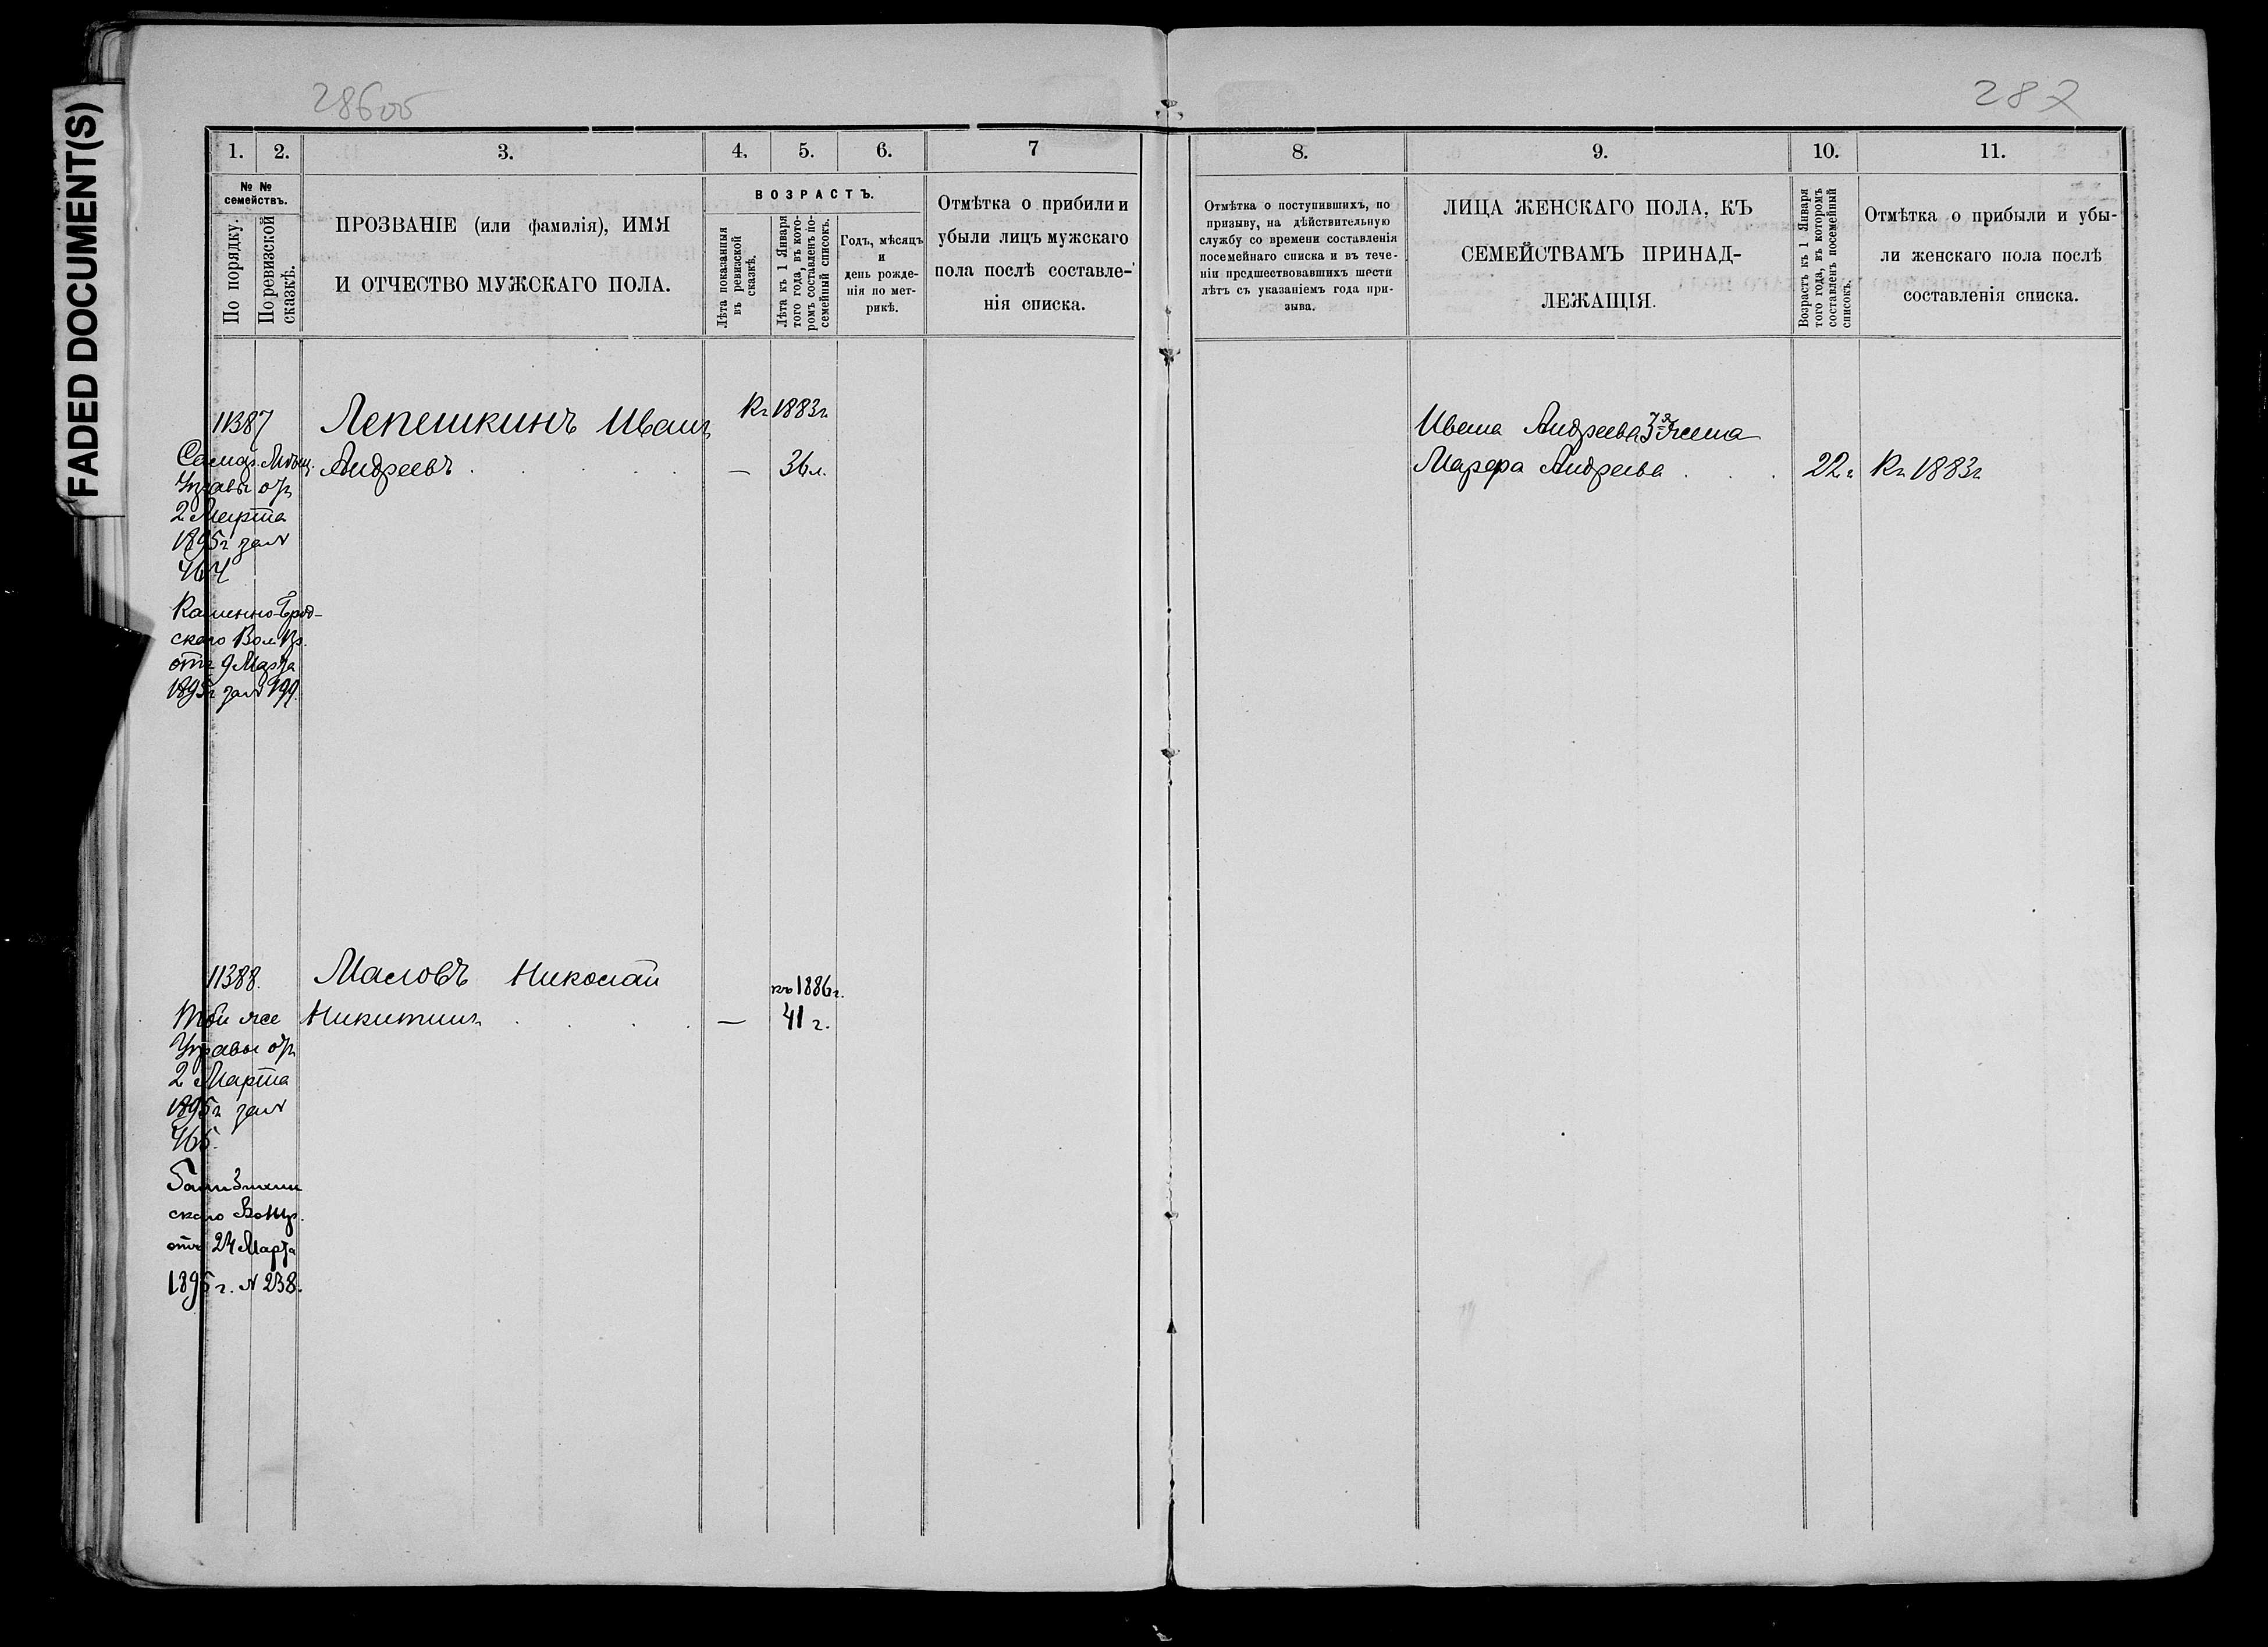 FADED DOCUMENT(S)
286об
287
1.
2.
3.
4.
5.
6.
7
№ №
семействъ.
По порядку.
По ревизской
сказкѣ.
ПРОЗВАНІЕ (или фамилія), ИМЯ
И ОТЧЕСТВО МУЖСКАГО ПОЛА.
ВОЗРАСТЪ.
Лѣта показанныя
въ ревизской
сказкѣ.
Лѣта къ 1 Января
того года, въ кото-
ромъ составленъ по-
семейный списокъ.
Годъ, мѣсяцъ
и
день рожде-
нія по мет-
рикѣ.
Отмѣтка о прибили и
убыли лицъ мужскаго
пола послѣ составле-
нія списка.
11387
Лепешкинъ Иванъ
Къ 1883г
Самар. Мѣщ.
Андреевъ . . . . — 36 л.
Управы отъ
2 Марта
1895г за №
464
Каменно-Брод-
скаго Вол. Пр.
отъ 9 Марта
1895г за № 199.
11388.
Масловъ Николай
къ 1886 г.
Той же
Никитинъ . . . . — 41 г.
Управы отъ
2 Марта
1895г за №
465.
скаго Вол. Пр.
отъ 24 Марта
1895 г. № 238.
8.
9.
10.
11.
Отмѣтка о поступившихъ, по
призыву, на дѣйствительную
службу со времени составленія
посемейнаго списка и въ тече-
ніи предшествовавшихъ шести
лѣтъ съ указаніемъ года при-
зыва.
ЛИЦА ЖЕНСКАГО ПОЛА, КЪ
СЕМЕЙСТВАМЪ ПРИНАД-
ЛЕЖАЩІЯ.
Возрастъ къ 1 Января
того года, въ которомъ
составленъ посемейный
списокъ.
Отмѣтка о прибыли и убы-
ли женскаго пола послѣ
составленія списка.
Ивана Андреева жена
Марфа Андреева . . . 22г Къ 1883г